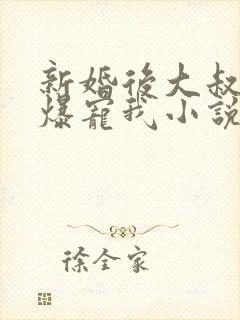 新婚後大叔
爆寵我小説
徐全家